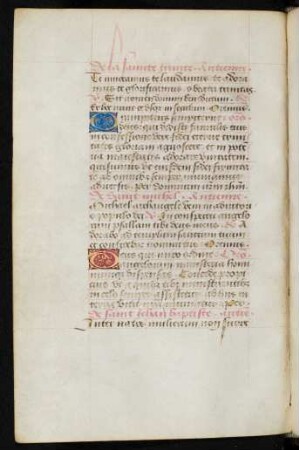 De la saincte trinite. Antienne.
Te invocamus te laudamus te adora
mus te glorificamus o beata trinitas
Sit nomen domini benedictum.
Ex hoc nunc et usque in seculum Oremus
Omnipotens sempiterne
deus qui dedisti famulis tuis
in confessione vere fidei eterne trini
tatis gloriam agnoscere et in poten
tia maiestatis adorare unitatem
quesumus ut eiusdem fidei firmitate
ab omnibus semper muniamur
adversis. per dominum
De saint michel. Antienne.
Michael archangele veni in adiutoriu
populo dei In conspectu angelo
rum psallam tibi deus meus
Adorabo ad templum sanctum tuum
et confitebor nomini tuo. Oremus.
Deus qui miro ordine
angelorum ministeria homi
numque dispensas Concede propi
cius ut a quibus tibi ministrantibus
in celo semper assistitur ab hiis in
terra vita nostra muniatur. per
De saint Jehan baptiste.
Inter natos mulierum non surre